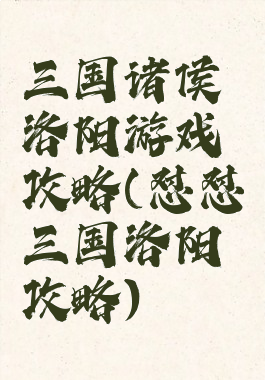 三国诸侯
洛阳游戏
攻略(怼怼
三国洛阳
攻略)